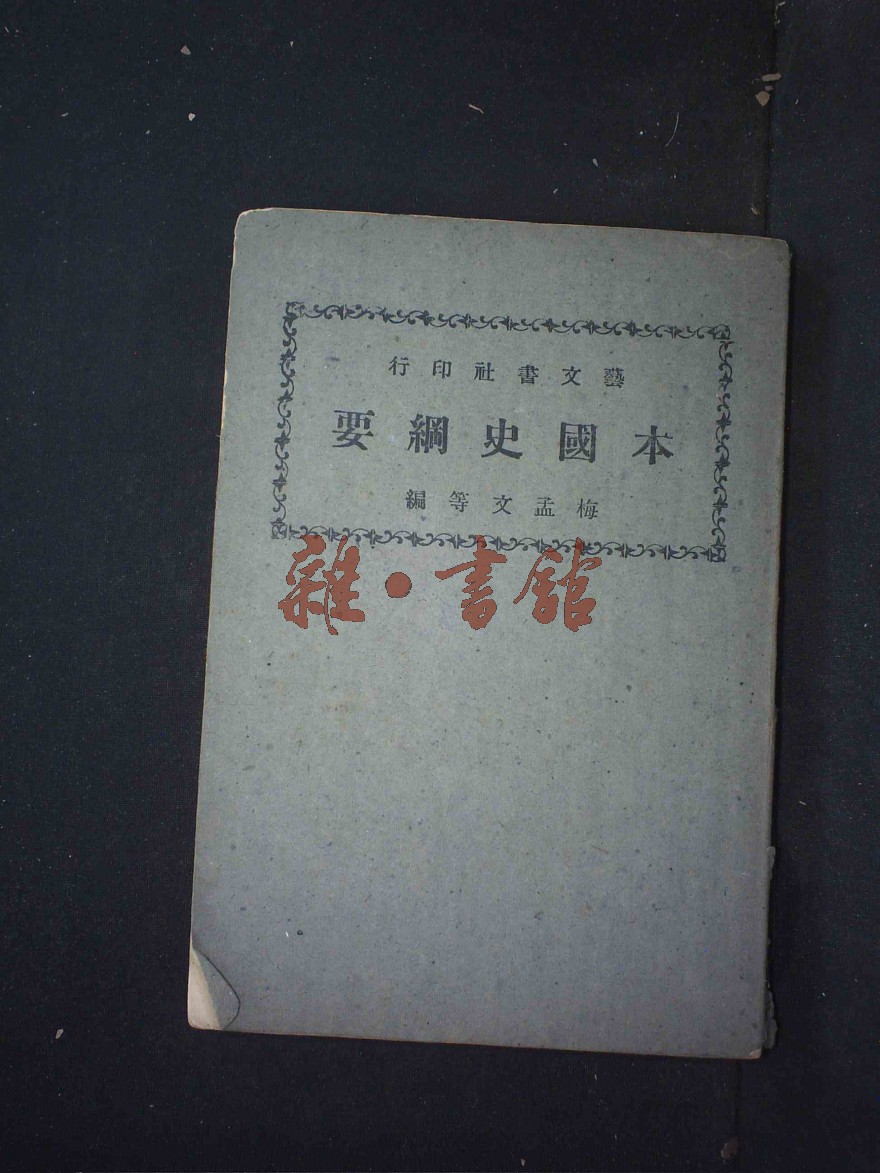 藝文書社印行
本國史綱要
梅孟文等編
雜·書館